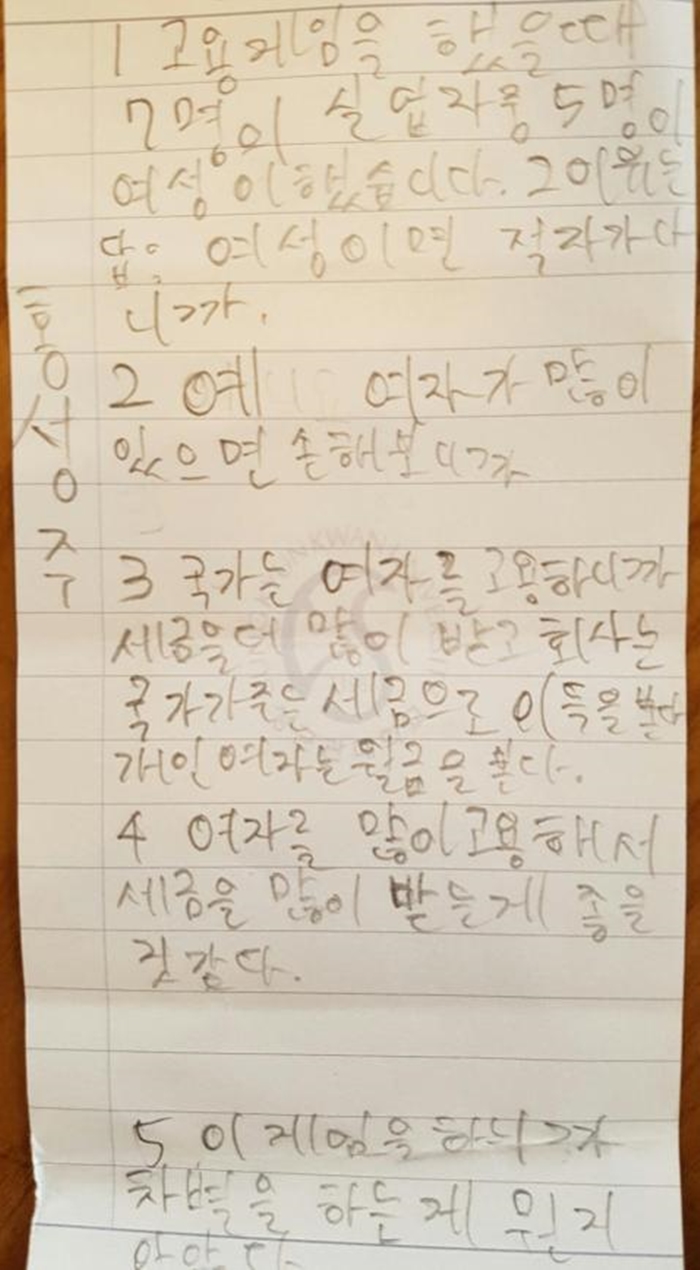 홍성주
1 고용게임을 했을때
7명의 실업자중 5명이
여성이했습니다. 그이유는
답: 여성이면 적자가나
니까.
2 예 여자가 많이
있으면 손해보니까
3 국가는 여자를 고용하니까
세금을더 많이 받고 회사는
국가가주는 세금으로 이득을 본다
개인여자는월급을 번다.
4 여자를 많이고용해서
세금을 많이 받는게 좋을
것같다.
5 이게임을하니까
차별을 하는게 뭔지
알았다